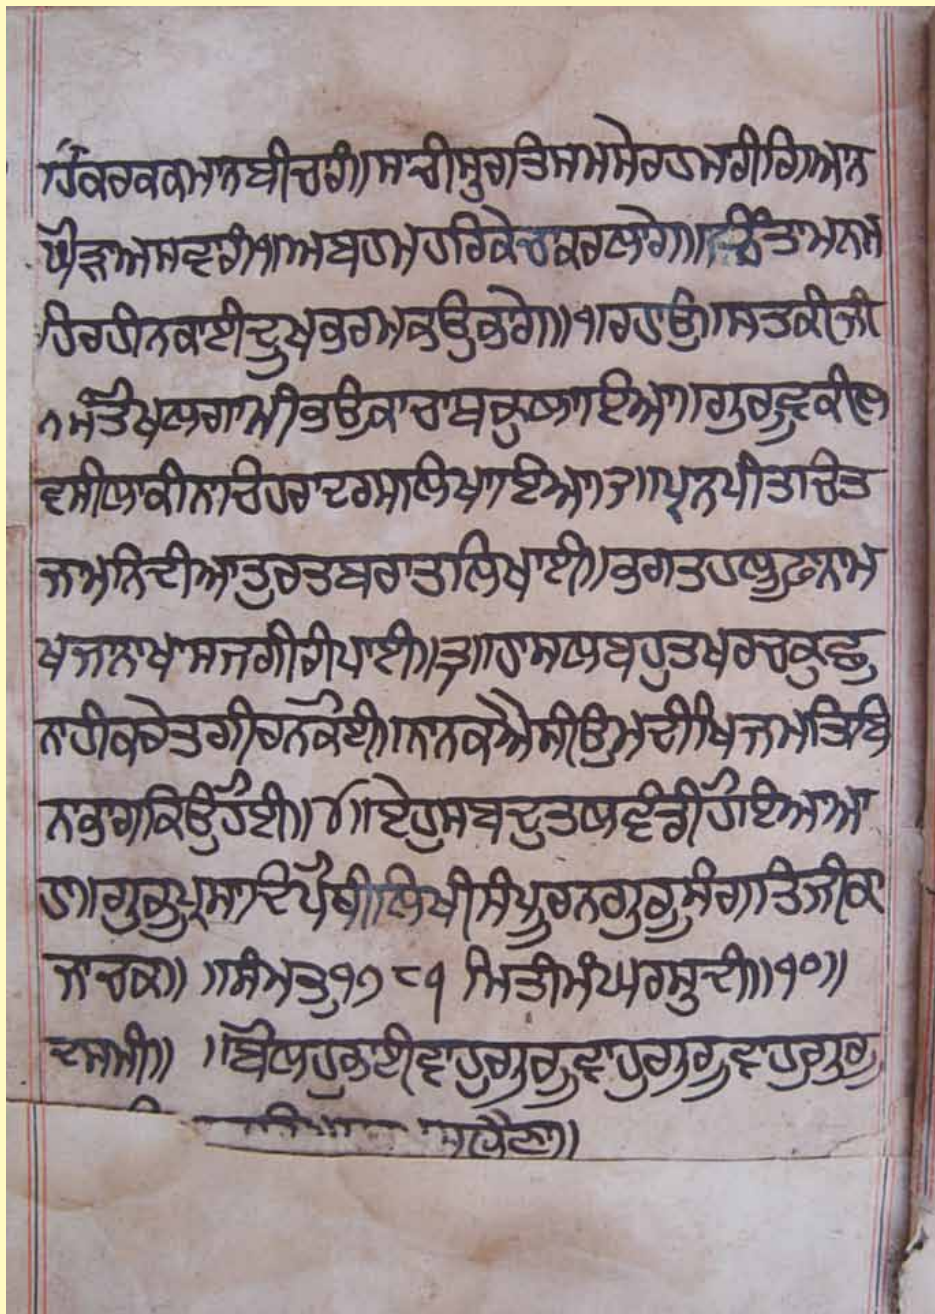 ਹਿਕਰਕਕਮਾਨਬੀਚਾਰੀ॥ਸਾਚੀਸੁਰਤਿਸਮਸੇਰਹਮਾਰੀਗਿਆਨ
ਘੋੜਾਅਸਵਾਰੀ੧॥ਅਬਹਮਹਰਿਕੇਚਾਕਰਲਾਗੇ॥ਚਿੰਤਾਮਨਮ
ਹਿਰਹੀਨਕਾਈਦੂਖਭਰਮਕਉਭਾਗੇ॥੧ਰਹਾਉ॥ਸਤਕੀਜੀ
ਨਸੰਤੋਖਲਗਾਮੀਭਉਕਾਚਾਬਕੁਲਾਇਆ॥ਗੁਰੂਵਕੀਲ
ਵਸੀਲਾਕੀਨਾਚੇਹਰਾਦਰਸਲਿਖਾਇਆ੨॥ਪ੍ਰਨਪੀਤਾਚਿਤ
ਜਾਮਨਿਦੀਆਤੁਰਤਬਰਾਤਲਿਖਾਈ॥ਭਗਤਹਲੂਫਾਨਾਮ
ਖਜਾਨਾਖਾਸਜਗੀਰੀਪਾਈ॥੩॥ਹਾਸਲਬਹੁਤਖਰਚਕੁਛੁ
ਨਾਹੀਕਰੇਤਗੀਰਨਕੋਈ॥ਨਾਨਕਐਸੀਉਮਦੀਖਿਜਮਤਿਬਿ
ਨਾਭਾਗਕਿਉਹੋਈ॥੪॥ਏਹੁਸਬਦੁਤਲਵੰਡੀਹੋਇਆਆ
ਹਾ॥ਗੁਰੂਪ੍ਰਸਾਦਿਪੋਥੀਲਿਖੀਸੰਪੂਰਨਗੁਰੂਸੰਗਤਿਜੀਕਾ
ਜਾਚਕ॥ ॥ਸੰਮਤੁ੧੭੮੧ ਮਿਤੀਮੰਘਰਸੁਦੀ॥੧੦॥
ਦਸਮੀ॥ ॥ਬੋਲਹੁਭਾਈਵਾਹੁਗੁਰੂਵਾਹੁਗੁਰੂਵਾਹੁਗੁਰੂ